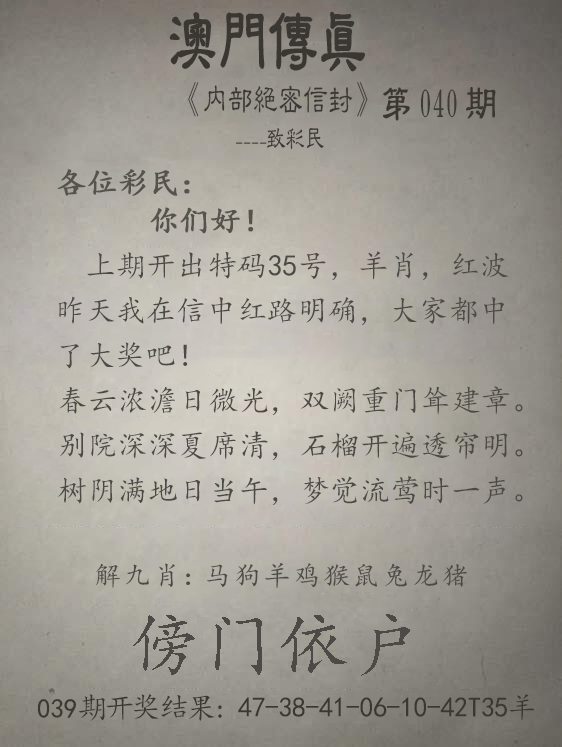 澳門傳真
《内部絕密信封》第040期
----致彩民
各位彩民：
你们好！
上期开出特码35号，羊肖，红波
昨天我在信中红路明确，大家都中
了大奖吧！
春云浓澹日微光，双阙重门耸建章。
别院深深夏席清，石榴开遍透帘明。
树阴满地日当午，梦觉流莺时一声。
解九肖：马狗羊鸡猴鼠兔龙猪
傍门依户
039期开奖结果：47-38-41-06-10-42T35羊